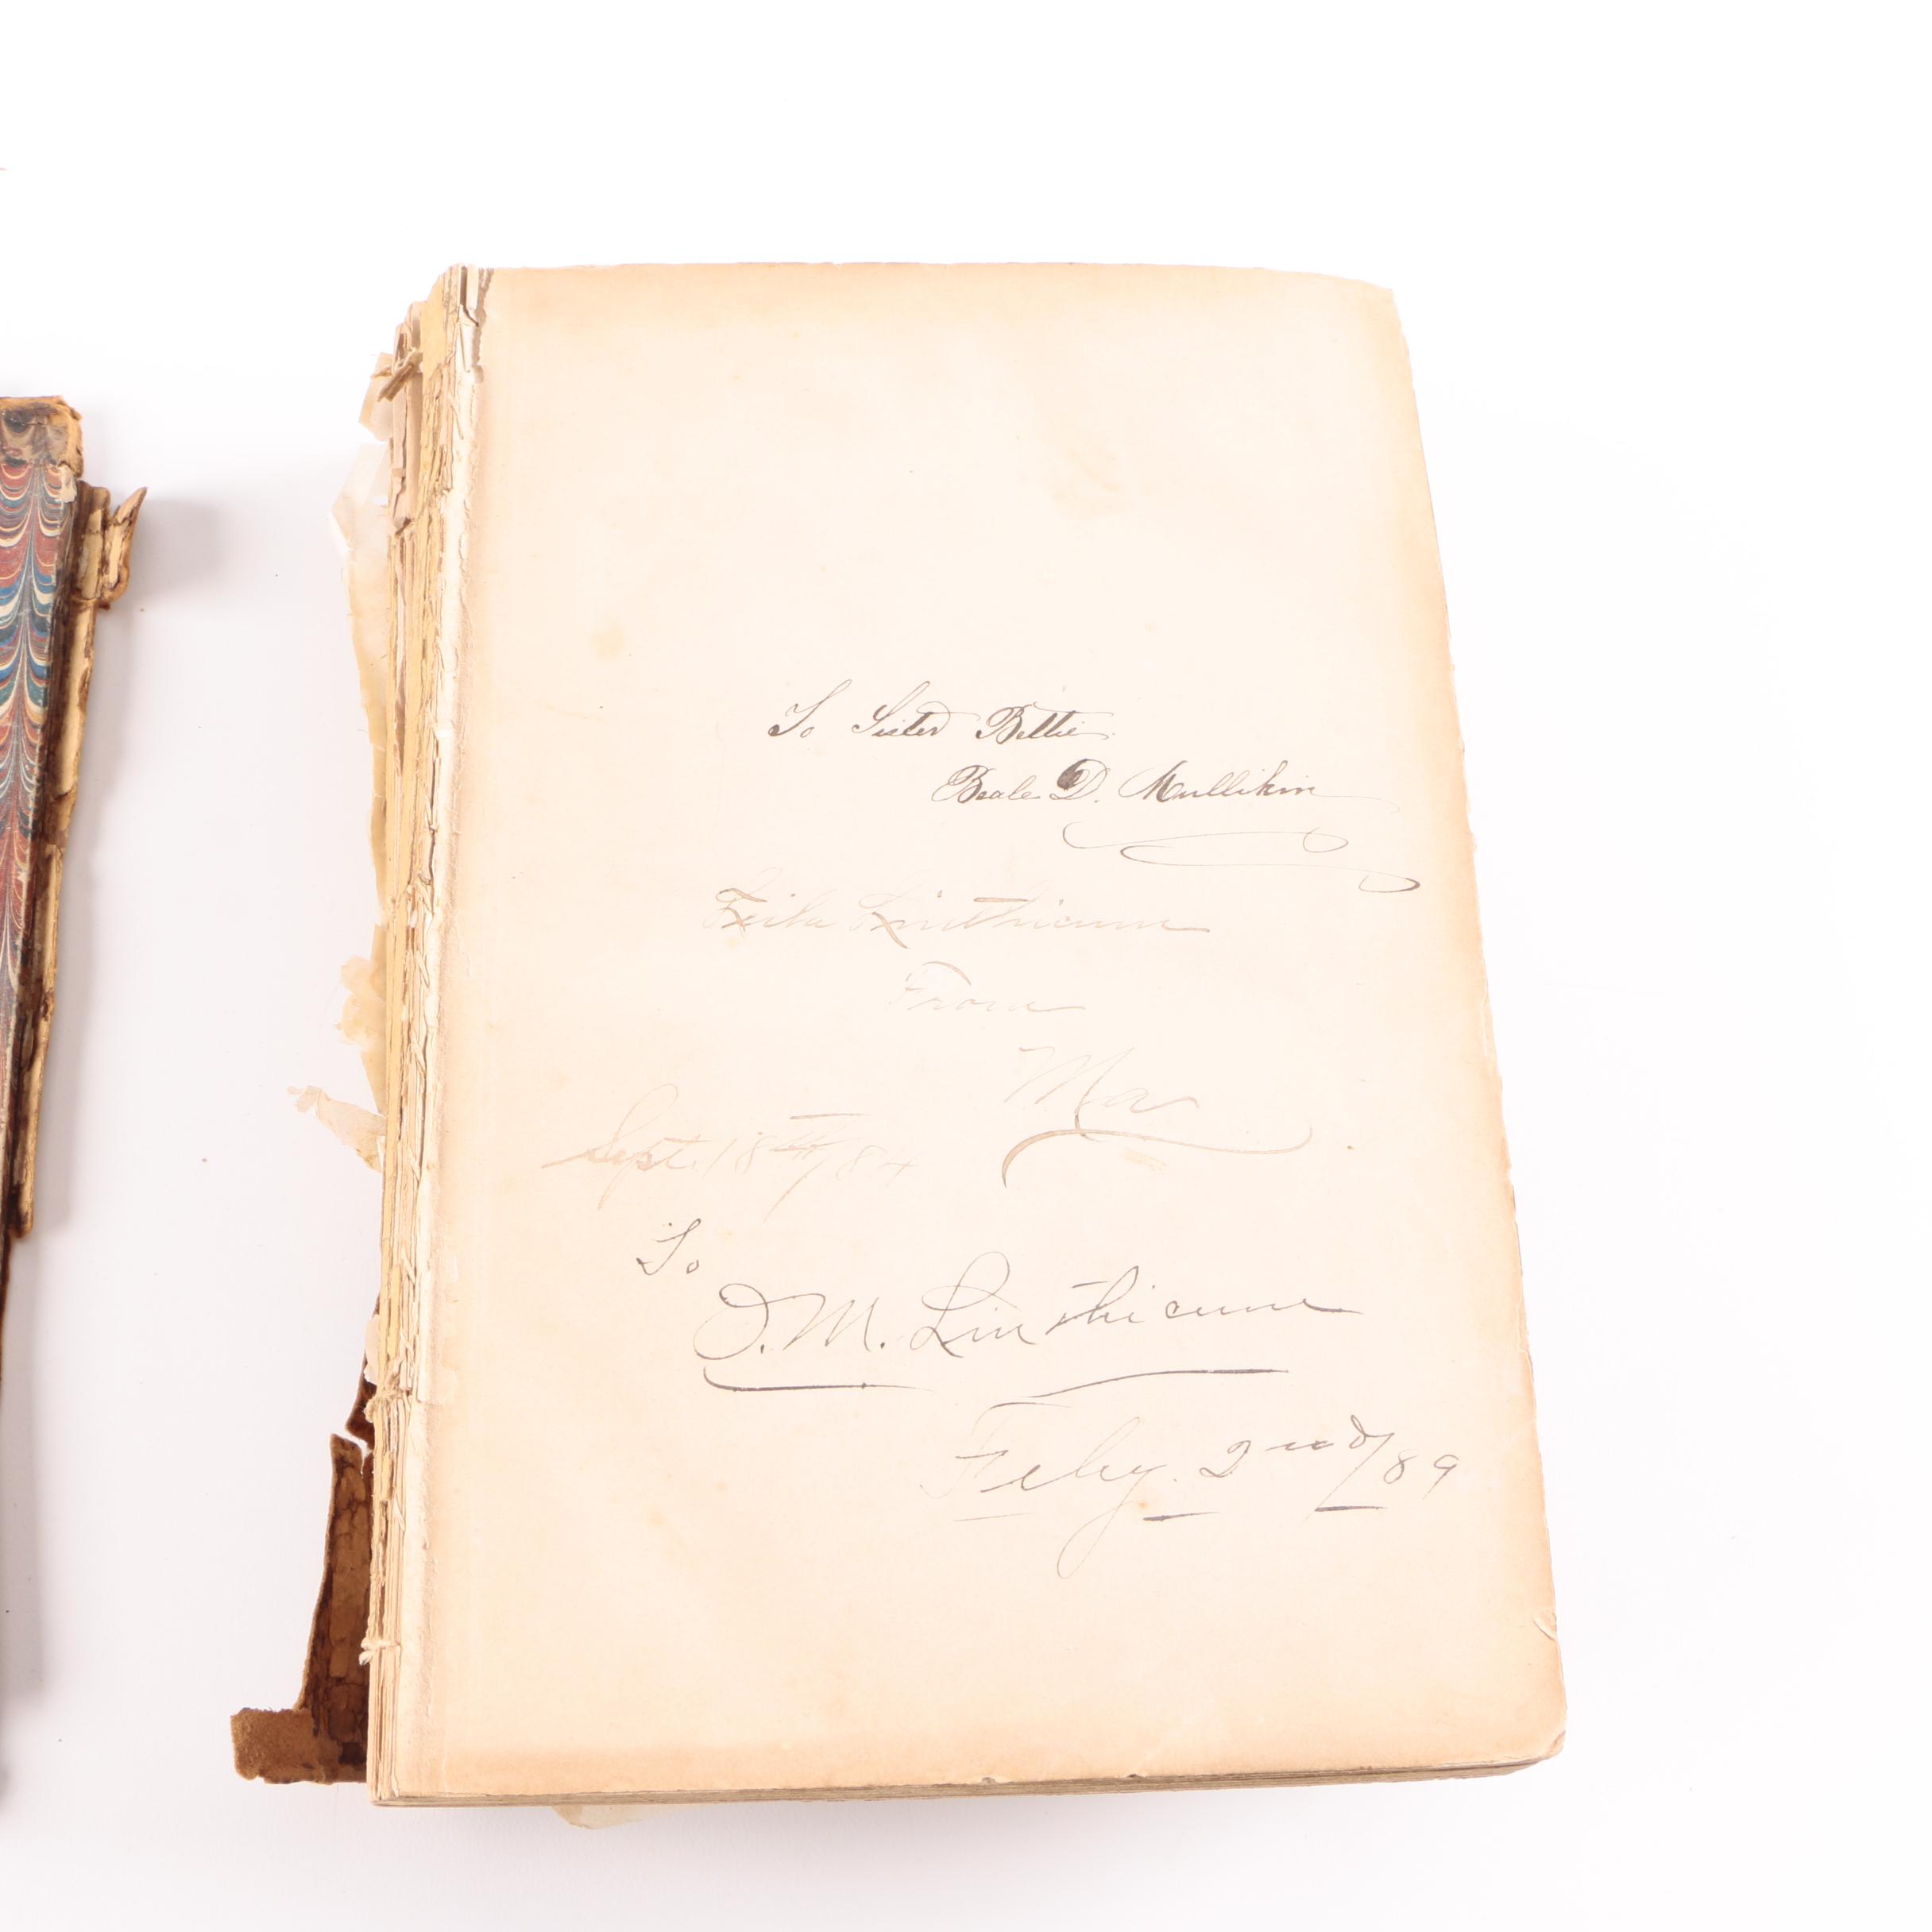 To Sister Bettie
Beale D. Mullikin
Leila Linthicum
From
Ma
Sept. 18th/84
To
O. M. Linthicum
Feby. 2nd/89